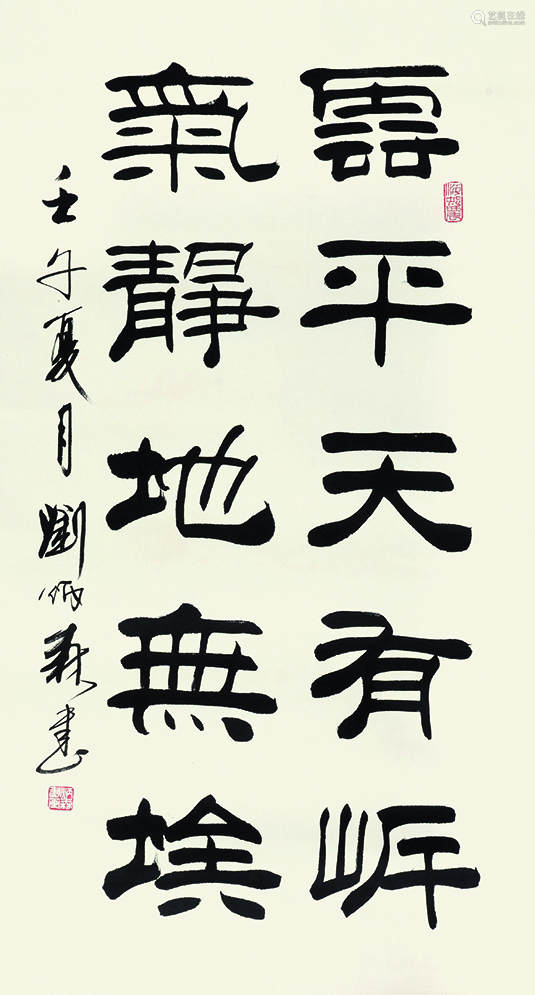 雲平天有岸
氣靜地無埃
壬午夏月劉炳森書
艺狐在线